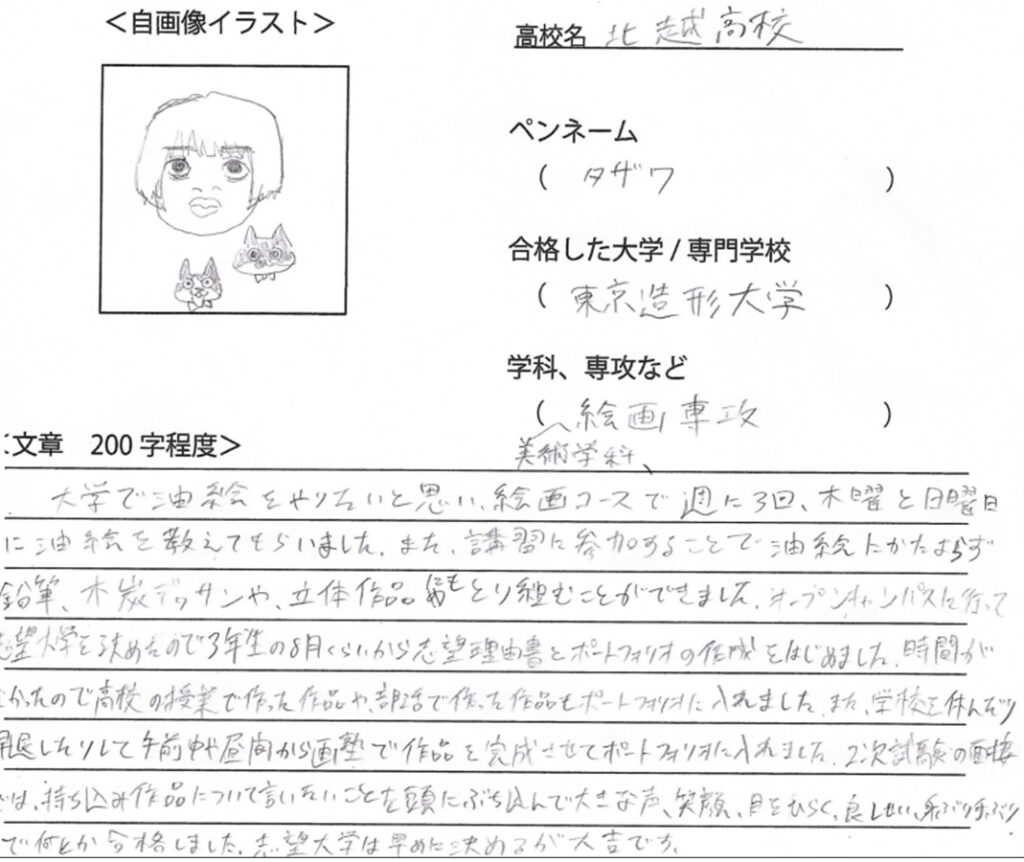 ＜自画像イラスト＞
高校名 北越高校
ペンネーム
( タザワ )
合格した大学 / 専門学校
( 東京造形大学 )
学科、専攻など
( 絵画専攻 )
美術学科、
＜文章　200 字程度＞
大学で油絵をやりたいと思い、絵画コースで週に3回、木曜と日曜日
に油絵を教えてもらいました。また、講習に参加することで油絵にかたよらず
鉛筆、木炭デッサンや、立体作品にもとり組むことができました。オープンキャンパスに行って
志望大学を決めたので3年生の8月くらいから志望理由書とポートフォリオの作成をはじめました。時間が
なかったので高校の授業で作った作品や、部活で作った作品もポートフォリオに入れました。また、学校を休んだり
早退したりして午前中や昼間から画塾で作品を完成させてポートフォリオに入れました。2次試験の面接
では、持ち込み作品について言いたいことを頭にぶち込んで大きな声、笑顔、目をひらく、良いしせい、身ぶり手ぶり
で何とか合格しました。志望大学は早めに決めるが大吉です。